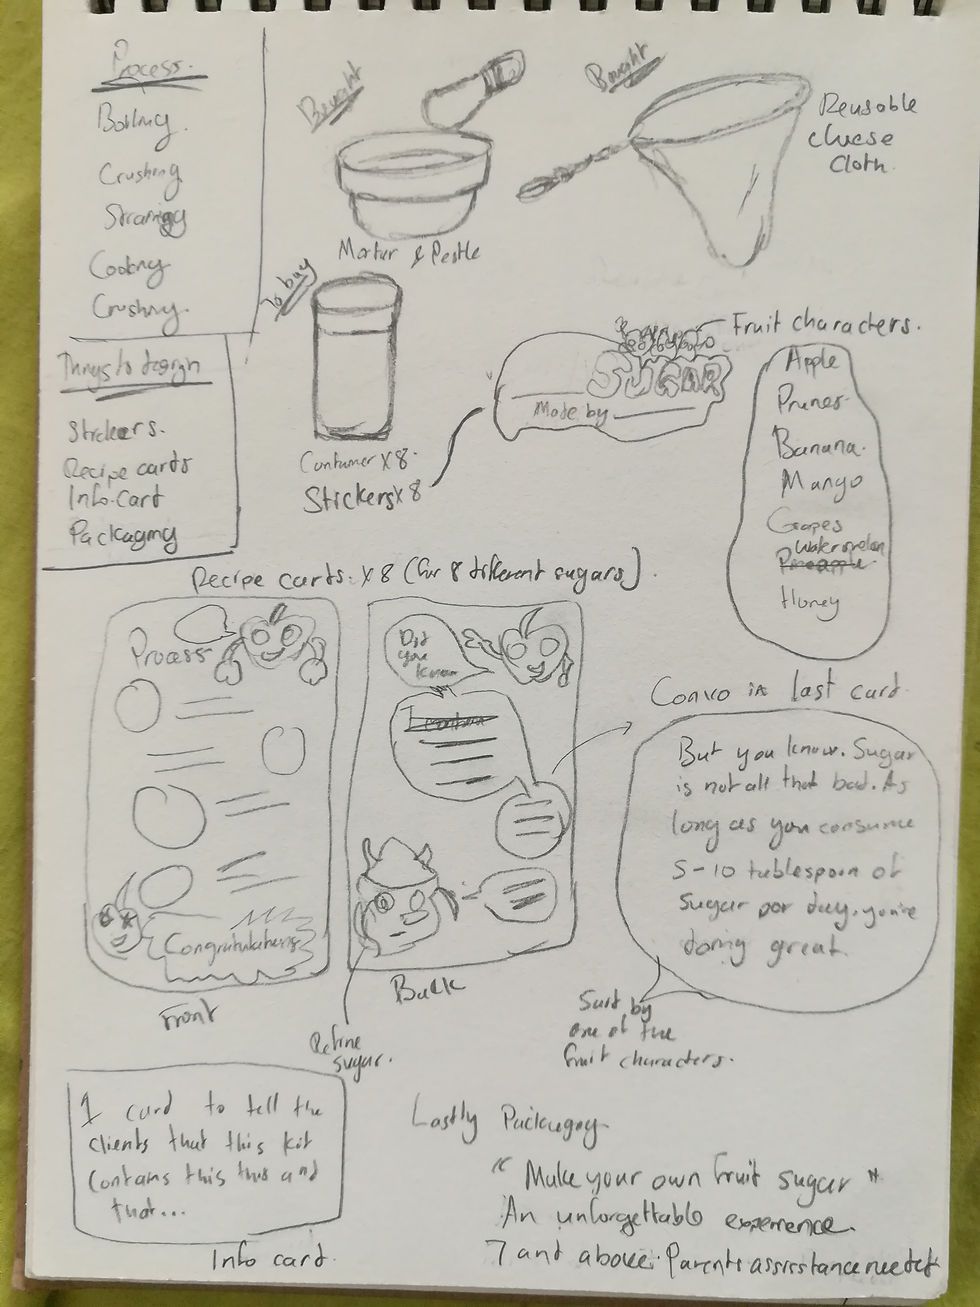 Process.
Boiling.
Crushing
Straining
Cooking
Crushing.
Things to design
Stickers.
Recipe carts
Info.Cart
Packaging
Bought
Mortur & Pestle
Bought
Reusable
cheese
cloth.
to buy
Container x 8.
Stickersx8
SUGAR
Made by
Fruit characters.
Apple
Prunes.
Banana.
Mango
Grapes
Watermelon
Pineapple.
Honey
Recipe carts. x 8 (for 8 different sugars).
Process
Congratulations
Front
Did
you
know
Back
Refine
sugar.
Convo in last card.
But you know. Sugar
is not all that bad. As
long as you consume
5-10 tablespoon of
sugar per day, you're
doing great.
Said by
one of the
fruit characters.
1 card to tell the
clients that this kit
contains this this and
that...
Info card.
Lastly Packaging.
"Make your own fruit sugar"
An unforgettable experience.
7 and above. Parents assisstance needed